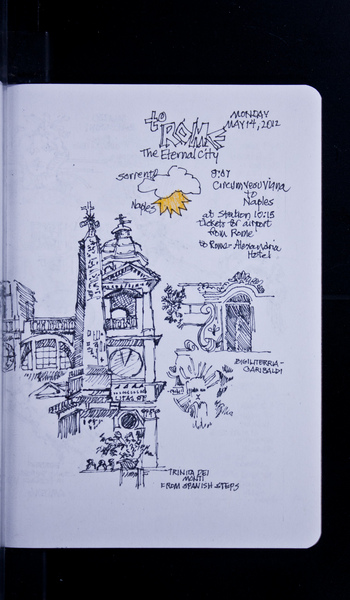 to
ROME
The Eternal City
MONDAY
MAY 14, 2012
Sorrento
Naples
to
Naples
at Station 10:15
tickets for airport
from Rome
to Rome - Alexandria
Hotel
GARIBALDI
TRINITA DEI
MONTI
FROM SPANISH STEPS